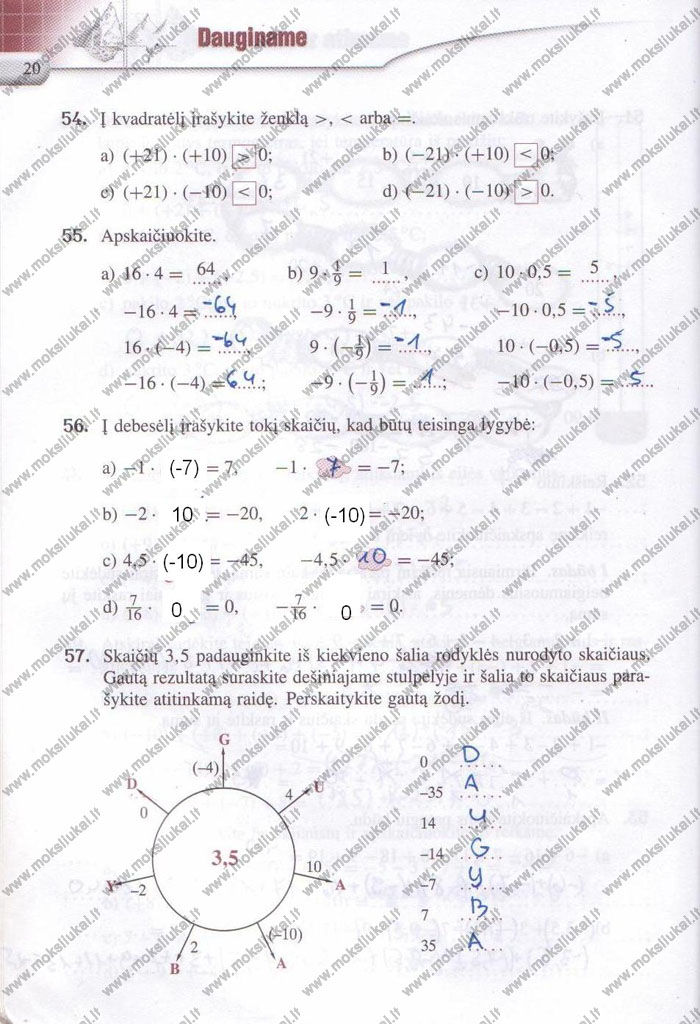 Dauginame
20
54. Į kvadratėlį įrašykite ženklą >, < arba =.
a) (+21) · (+10) > 0; b) (−21) · (+10) < 0;
c) (+21) · (−10) < 0; d) (−21) · (−10) > 0.
55. Apskaičiuokite.
a) 16 · 4 = 64, b) 9 · 1/9 = 1, c) 10 · 0,5 = 5,
−16 · 4 = -64, −9 · 1/9 = -1, −10 · 0,5 = -5,
16 · (−4) = -64, 9 · (−1/9) = -1, 10 · (−0,5) = -5,
−16 · (−4) = 64; −9 · (−1/9) = 1; −10 · (−0,5) = 5.
56. Į debesėlį įrašykite tokį skaičių, kad būtų teisinga lygybė:
a) −1 · (-7) = 7, −1 · 7 = −7;
b) −2 · 10 = −20, 2 · (-10) = −20;
c) 4,5 · (-10) = −45, −4,5 · 10 = −45;
d) 7/16 · 0 = 0, −7/16 · 0 = 0.
57. Skaičių 3,5 padauginkite iš kiekvieno šalia rodyklės nurodyto skaičiaus.
Gautą rezultatą suraskite dešiniajame stulpelyje ir šalia to skaičiaus para-
šykite atitinkamą raidę. Perskaitykite gautą žodį.
G
(−4)
D
0
U
4
3,5
10
A
Y
−2
2
B
(−10)
A
0 D
−35 A
14 U
−14 G
−7 Y
7 B
35 A
www.moksliukai.lt